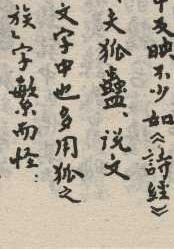 中反映不少如《詩經》
夫狐蠱、说文
文字中也多用狐之
族、字繁而怪：